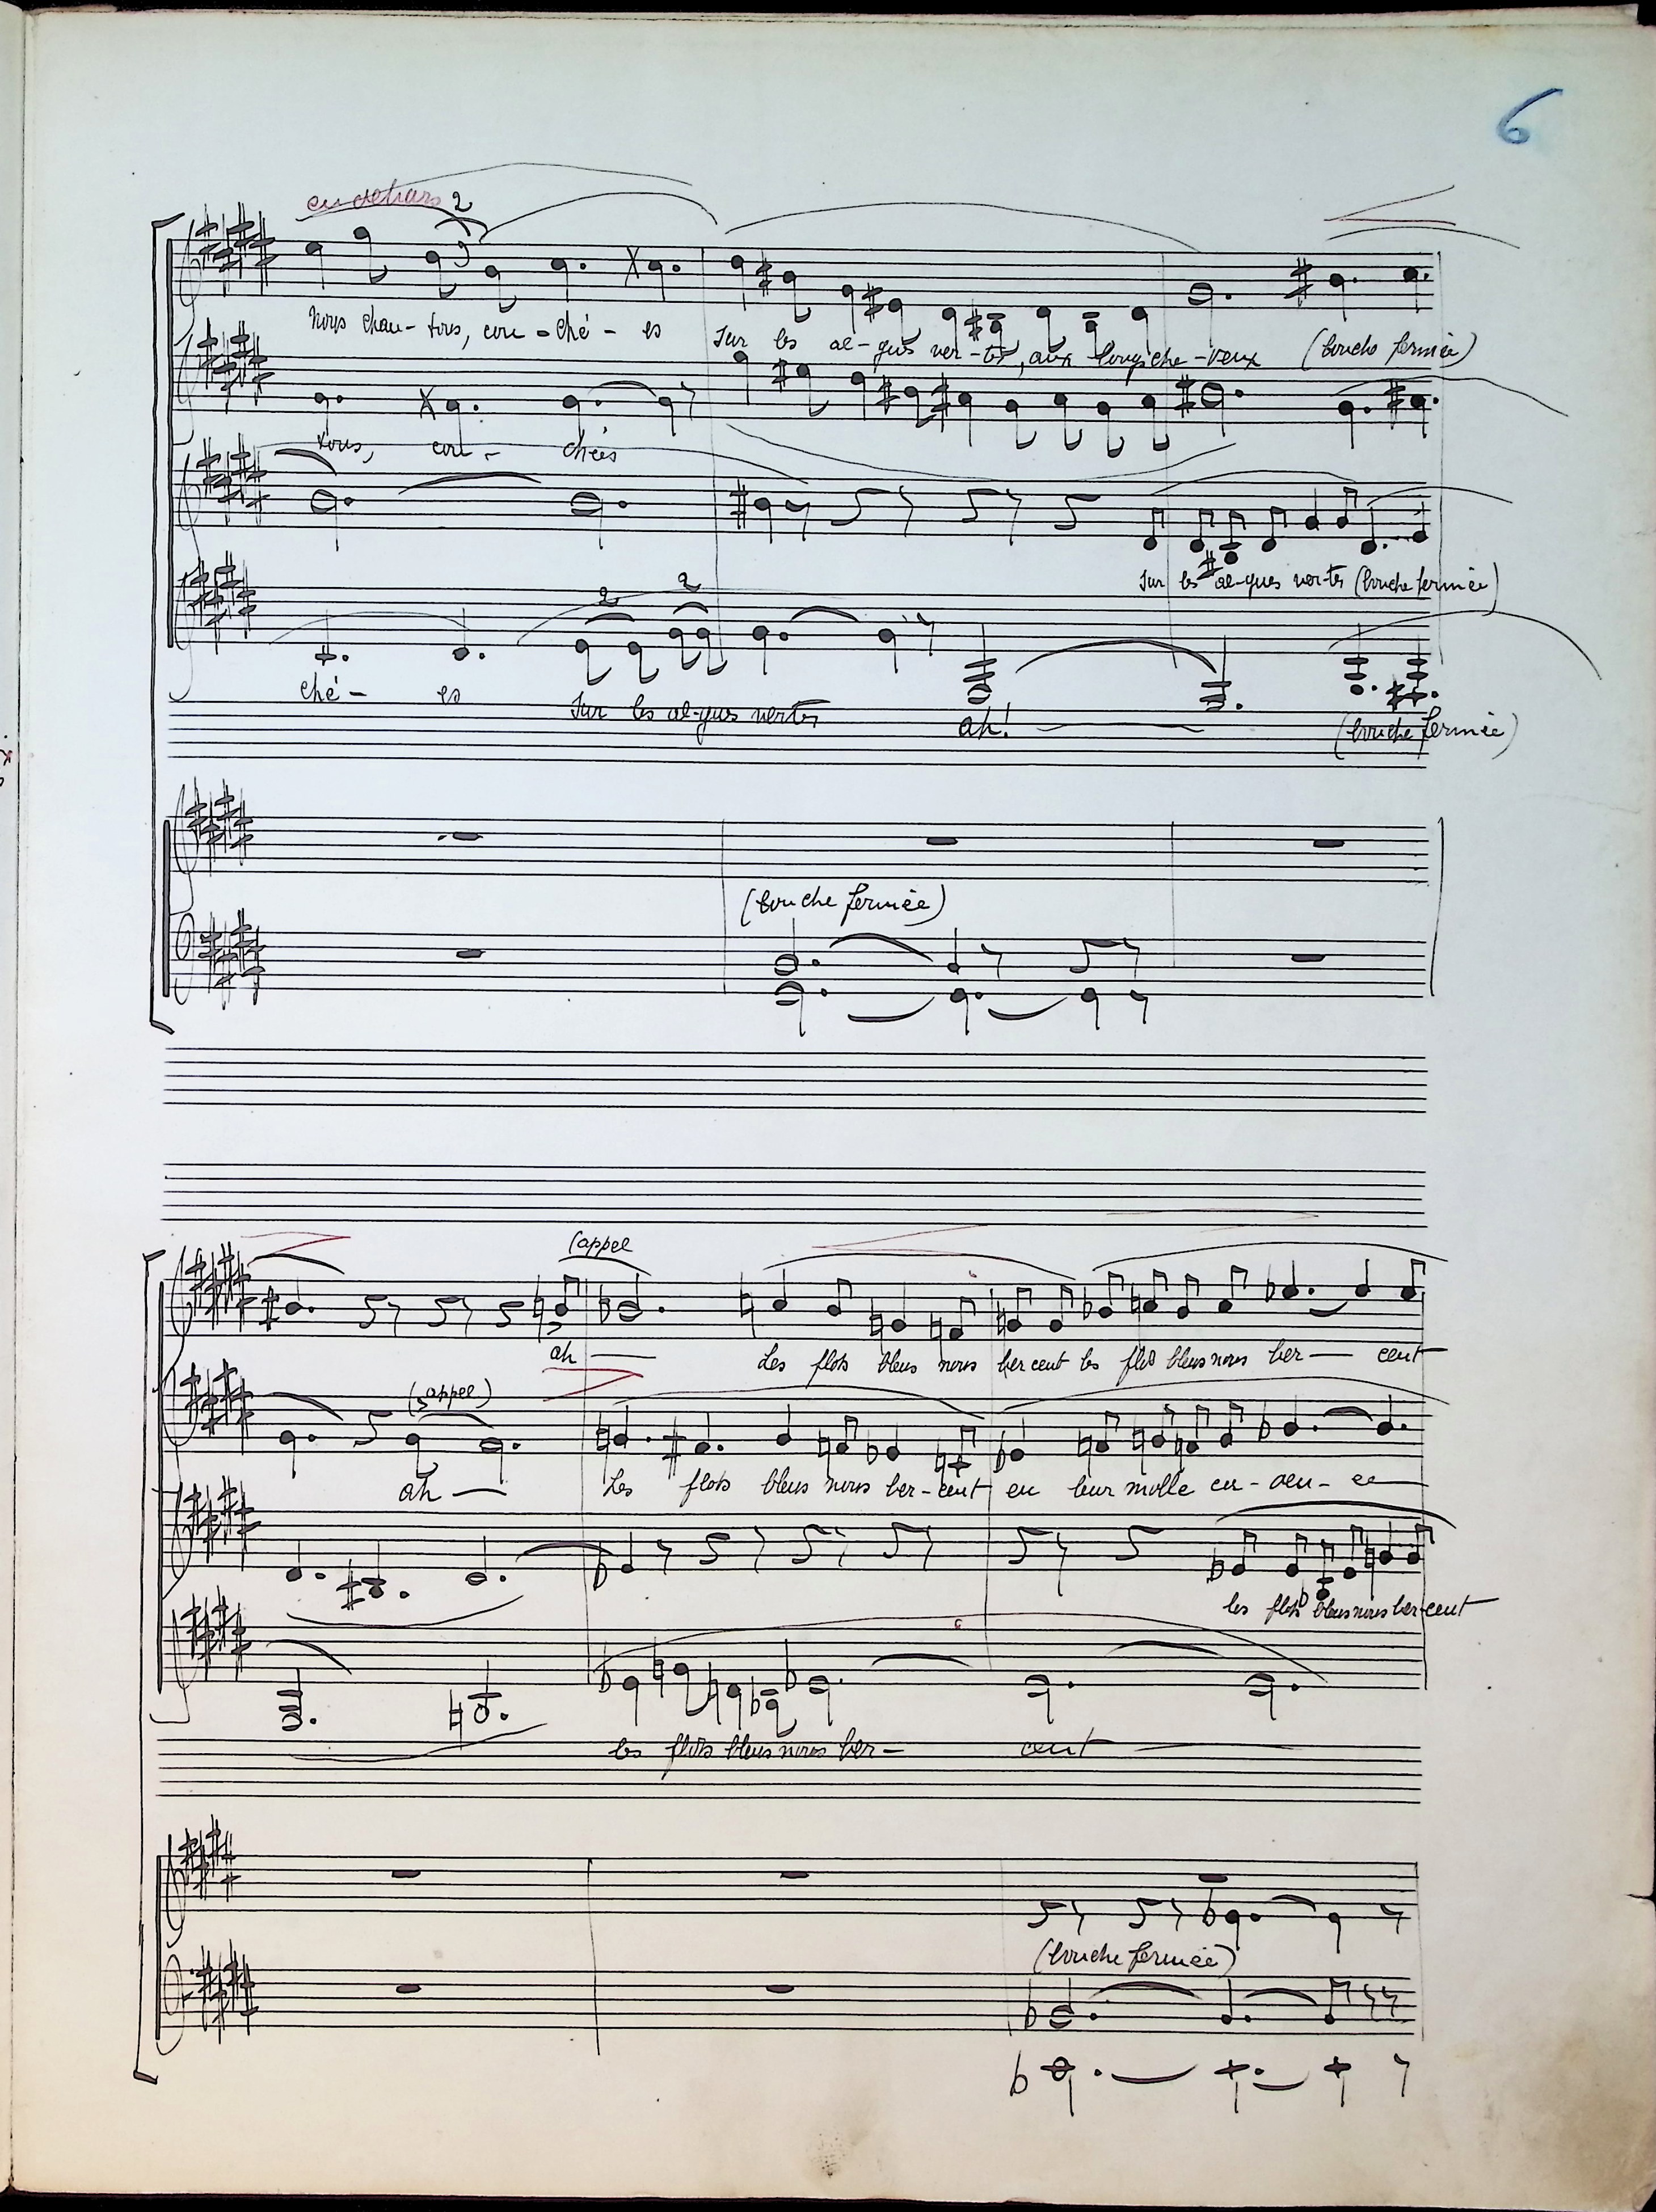 6
en dehors 2
Nous chan-tons, cou-ché-es sur les al-gues ver-tes, aux longs che-veux (bouche fermée)
tons, cou-chées
sur les al-gues ver-tes (bouche fermée)
2 2
ché-es sur les al-gues vertes ah! (bouche fermée)
(bouche fermée)
(appel
ah Les flots bleus nous bercent les flots bleus nous ber-cent
(appel)
ah Les flots bleus nous ber-cent en leur molle ca-den-ce
les flots bleus nous ber-cent
les flots bleus nous ber-cent
(bouche fermée)